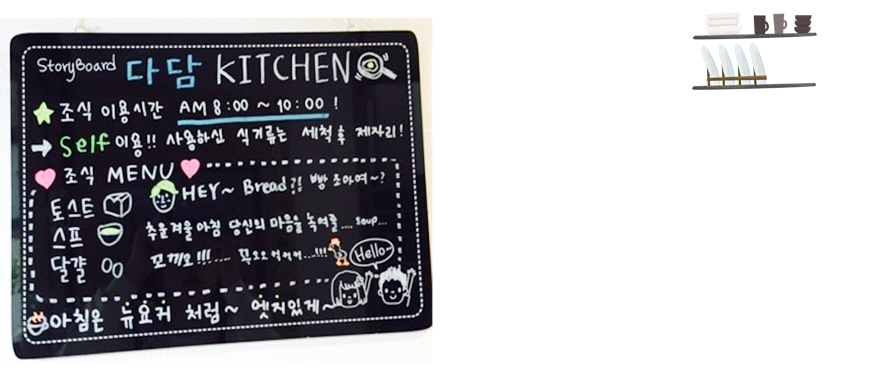 StoryBoard 다담 KITCHEN
조식 이용시간 AM 8:00 ~ 10:00 !
Self 이용!! 사용하신 식기류는 세척 후 제자리!
조식 MENU
HEY~ Bread?! 빵 조아여~?
토스트
스프 추울겨울아침 당신의 마음을 녹여줄 .... soup...
달걀 꼬끼오!!! .... 꼭
Hello~
아침은 뉴요커 처럼~ 엣지있게~